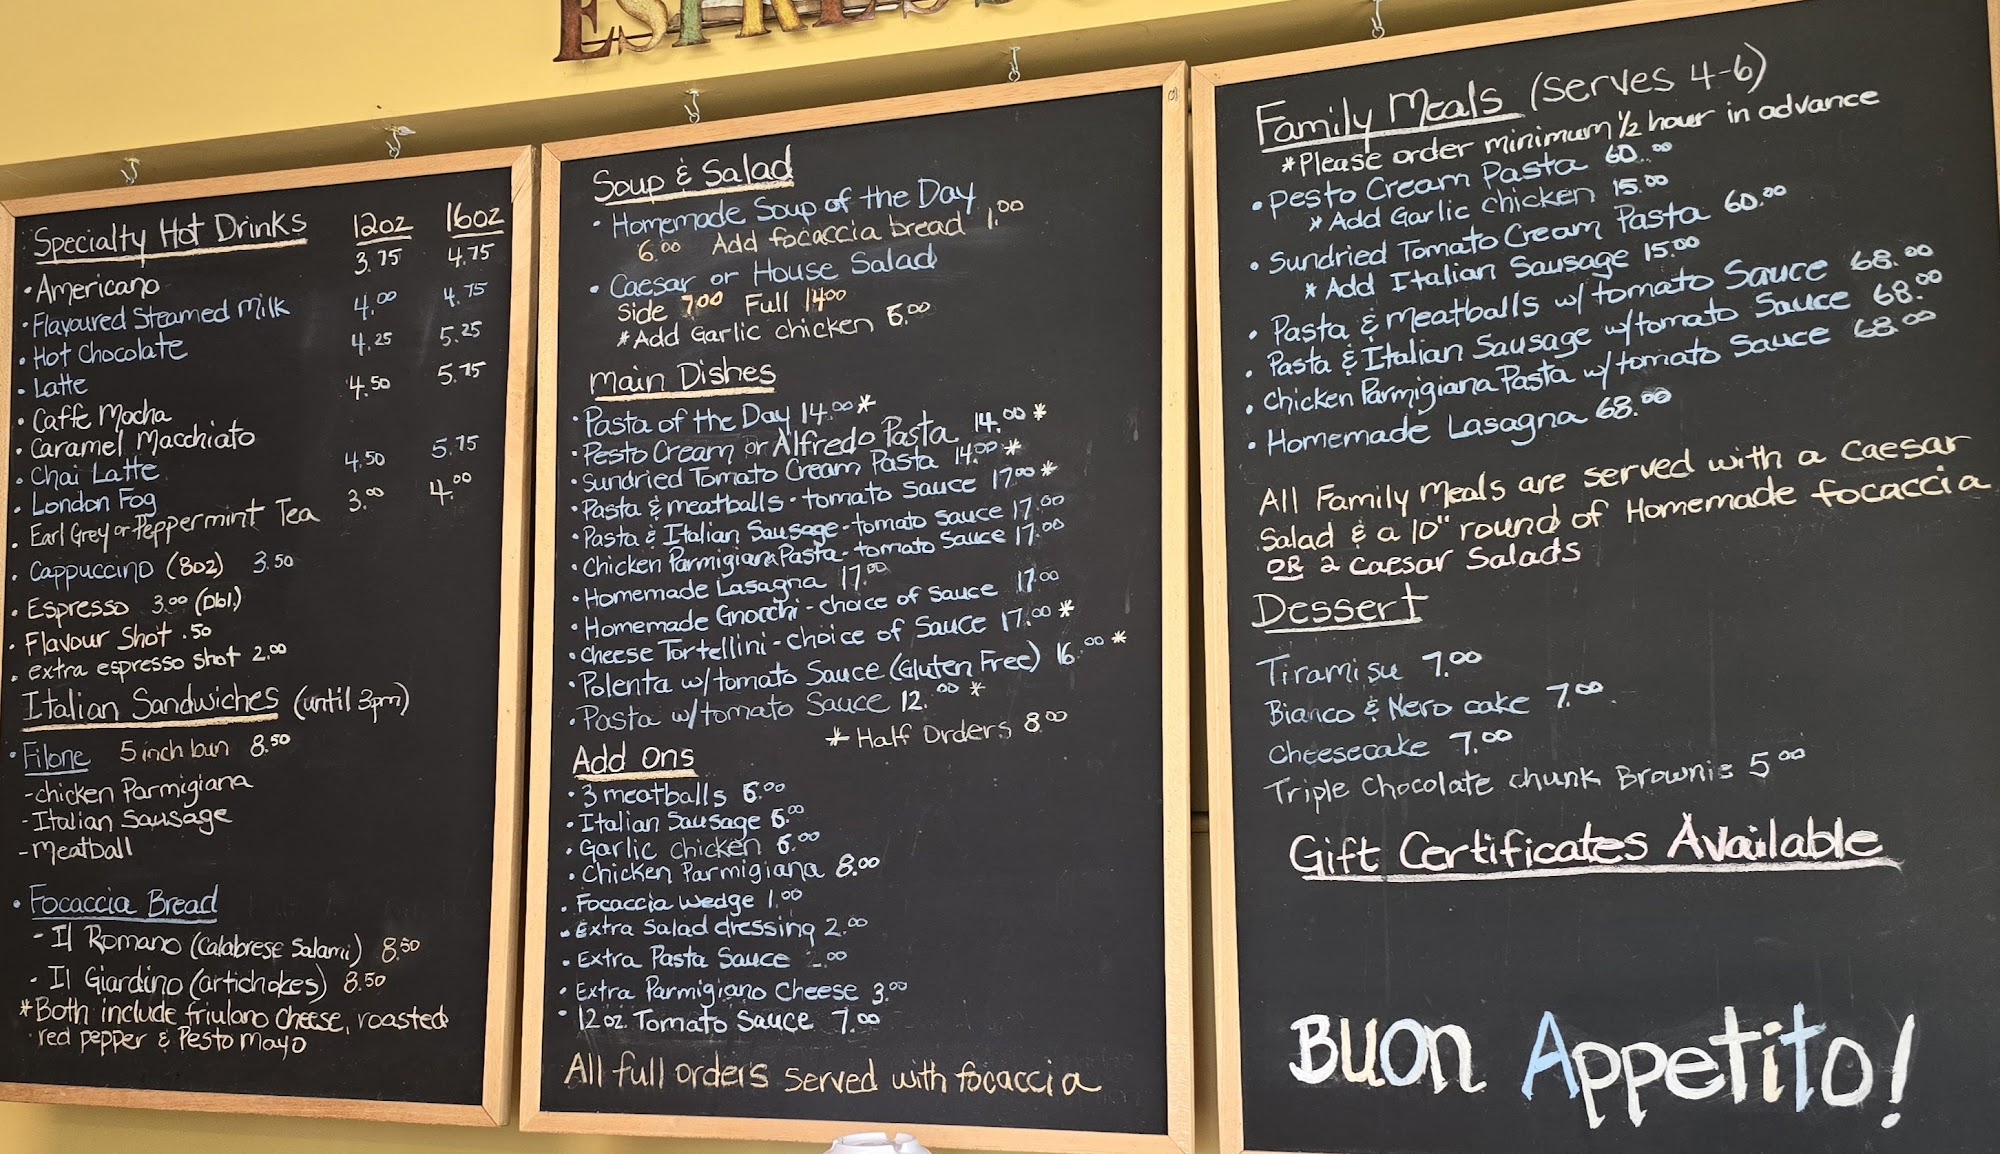 ESPRESSO
Specialty Hot Drinks 12oz 16oz
• Americano 3.75 4.75
• Flavoured Steamed Milk 4.00 4.75
• Hot Chocolate 4.25 5.25
• Latte 4.50 5.75
• Caffe Mocha
• Caramel Macchiato
• Chai Latte 4.50 5.75
• London Fog
• Earl Grey or Peppermint Tea 3.00 4.00
• Cappuccino (8oz) 3.50
• Espresso 3.00 (Dbl.)
• Flavour Shot .50
• extra espresso shot 2.00
Italian Sandwiches (until 3pm)
• Filone 5 inch bun 8.50
- Chicken Parmigiana
- Italian Sausage
- Meatball
• Focaccia Bread
- Il Romano (Calabrese Salami) 8.50
- Il Giardino (artichokes) 8.50
* Both include friulano cheese, roasted
red pepper & Pesto Mayo
Soup & Salad
• Homemade Soup of the Day
6.00 Add focaccia bread 1.00
• Caesar or House Salad
Side 7.00 Full 14.00
* Add Garlic chicken 6.00
Main Dishes
• Pasta of the Day 14.00 *
• Pesto Cream or Alfredo Pasta 14.00 *
• Sundried Tomato Cream Pasta 14.00 *
• Pasta & meatballs - tomato sauce 17.00 *
• Pasta & Italian Sausage - tomato sauce 17.00
• Chicken Parmigiana Pasta - tomato sauce 17.00
• Homemade Lasagna 17.00
• Homemade Gnocchi - choice of sauce 17.00
• Cheese Tortellini - choice of sauce 17.00 *
• Polenta w/tomato Sauce (Gluten Free) 16.00 *
• Pasta w/tomato Sauce 12.00 *
* Half Orders 8.00
Add Ons
• 3 meatballs 6.00
• Italian Sausage 6.00
• Garlic chicken 6.00
• Chicken Parmigiana 8.00
• Focaccia wedge 1.00
• Extra Salad dressing 2.00
• Extra Pasta Sauce 2.00
• Extra Parmigiano Cheese 3.00
• 12oz. Tomato Sauce 7.00
All full orders served with focaccia
Family Meals (serves 4-6)
* Please order minimum 1/2 hour in advance
• Pesto Cream Pasta 60.00
* Add Garlic chicken 15.00
• Sundried Tomato Cream Pasta 60.00
* Add Italian Sausage 15.00
• Pasta & Meatballs w/tomato Sauce 68.00
• Pasta & Italian Sausage w/tomato Sauce 68.00
• Chicken Parmigiana Pasta w/tomato Sauce 68.00
• Homemade Lasagna 68.00
All Family Meals are served with a Caesar
Salad & a 10" round of Homemade focaccia
OR 2 Caesar Salads
Dessert
Tiramisu 7.00
Bianco & Nero cake 7.00
Cheesecake 7.00
Triple Chocolate chunk Brownie 5.00
Gift Certificates Available
Buon Appetito!